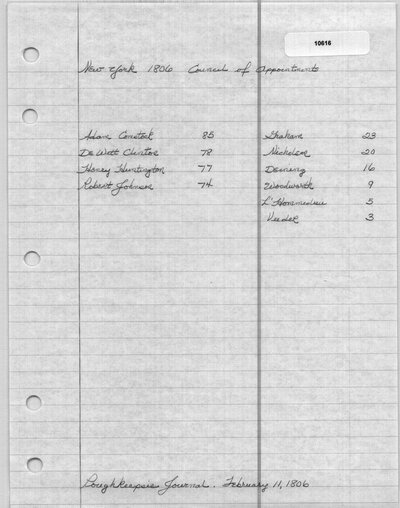 10616
New York 1806 Council of Appointments
Adam Comstock 85 Graham 23
De Witt Clinton 78 Nicholson 20
Henry Huntington 77 Deming 16
Robert Johnson 74 Woodworth 9
L'Hommedieu 5
Veeder 3
Poughkeepsie Journal. February 11, 1806